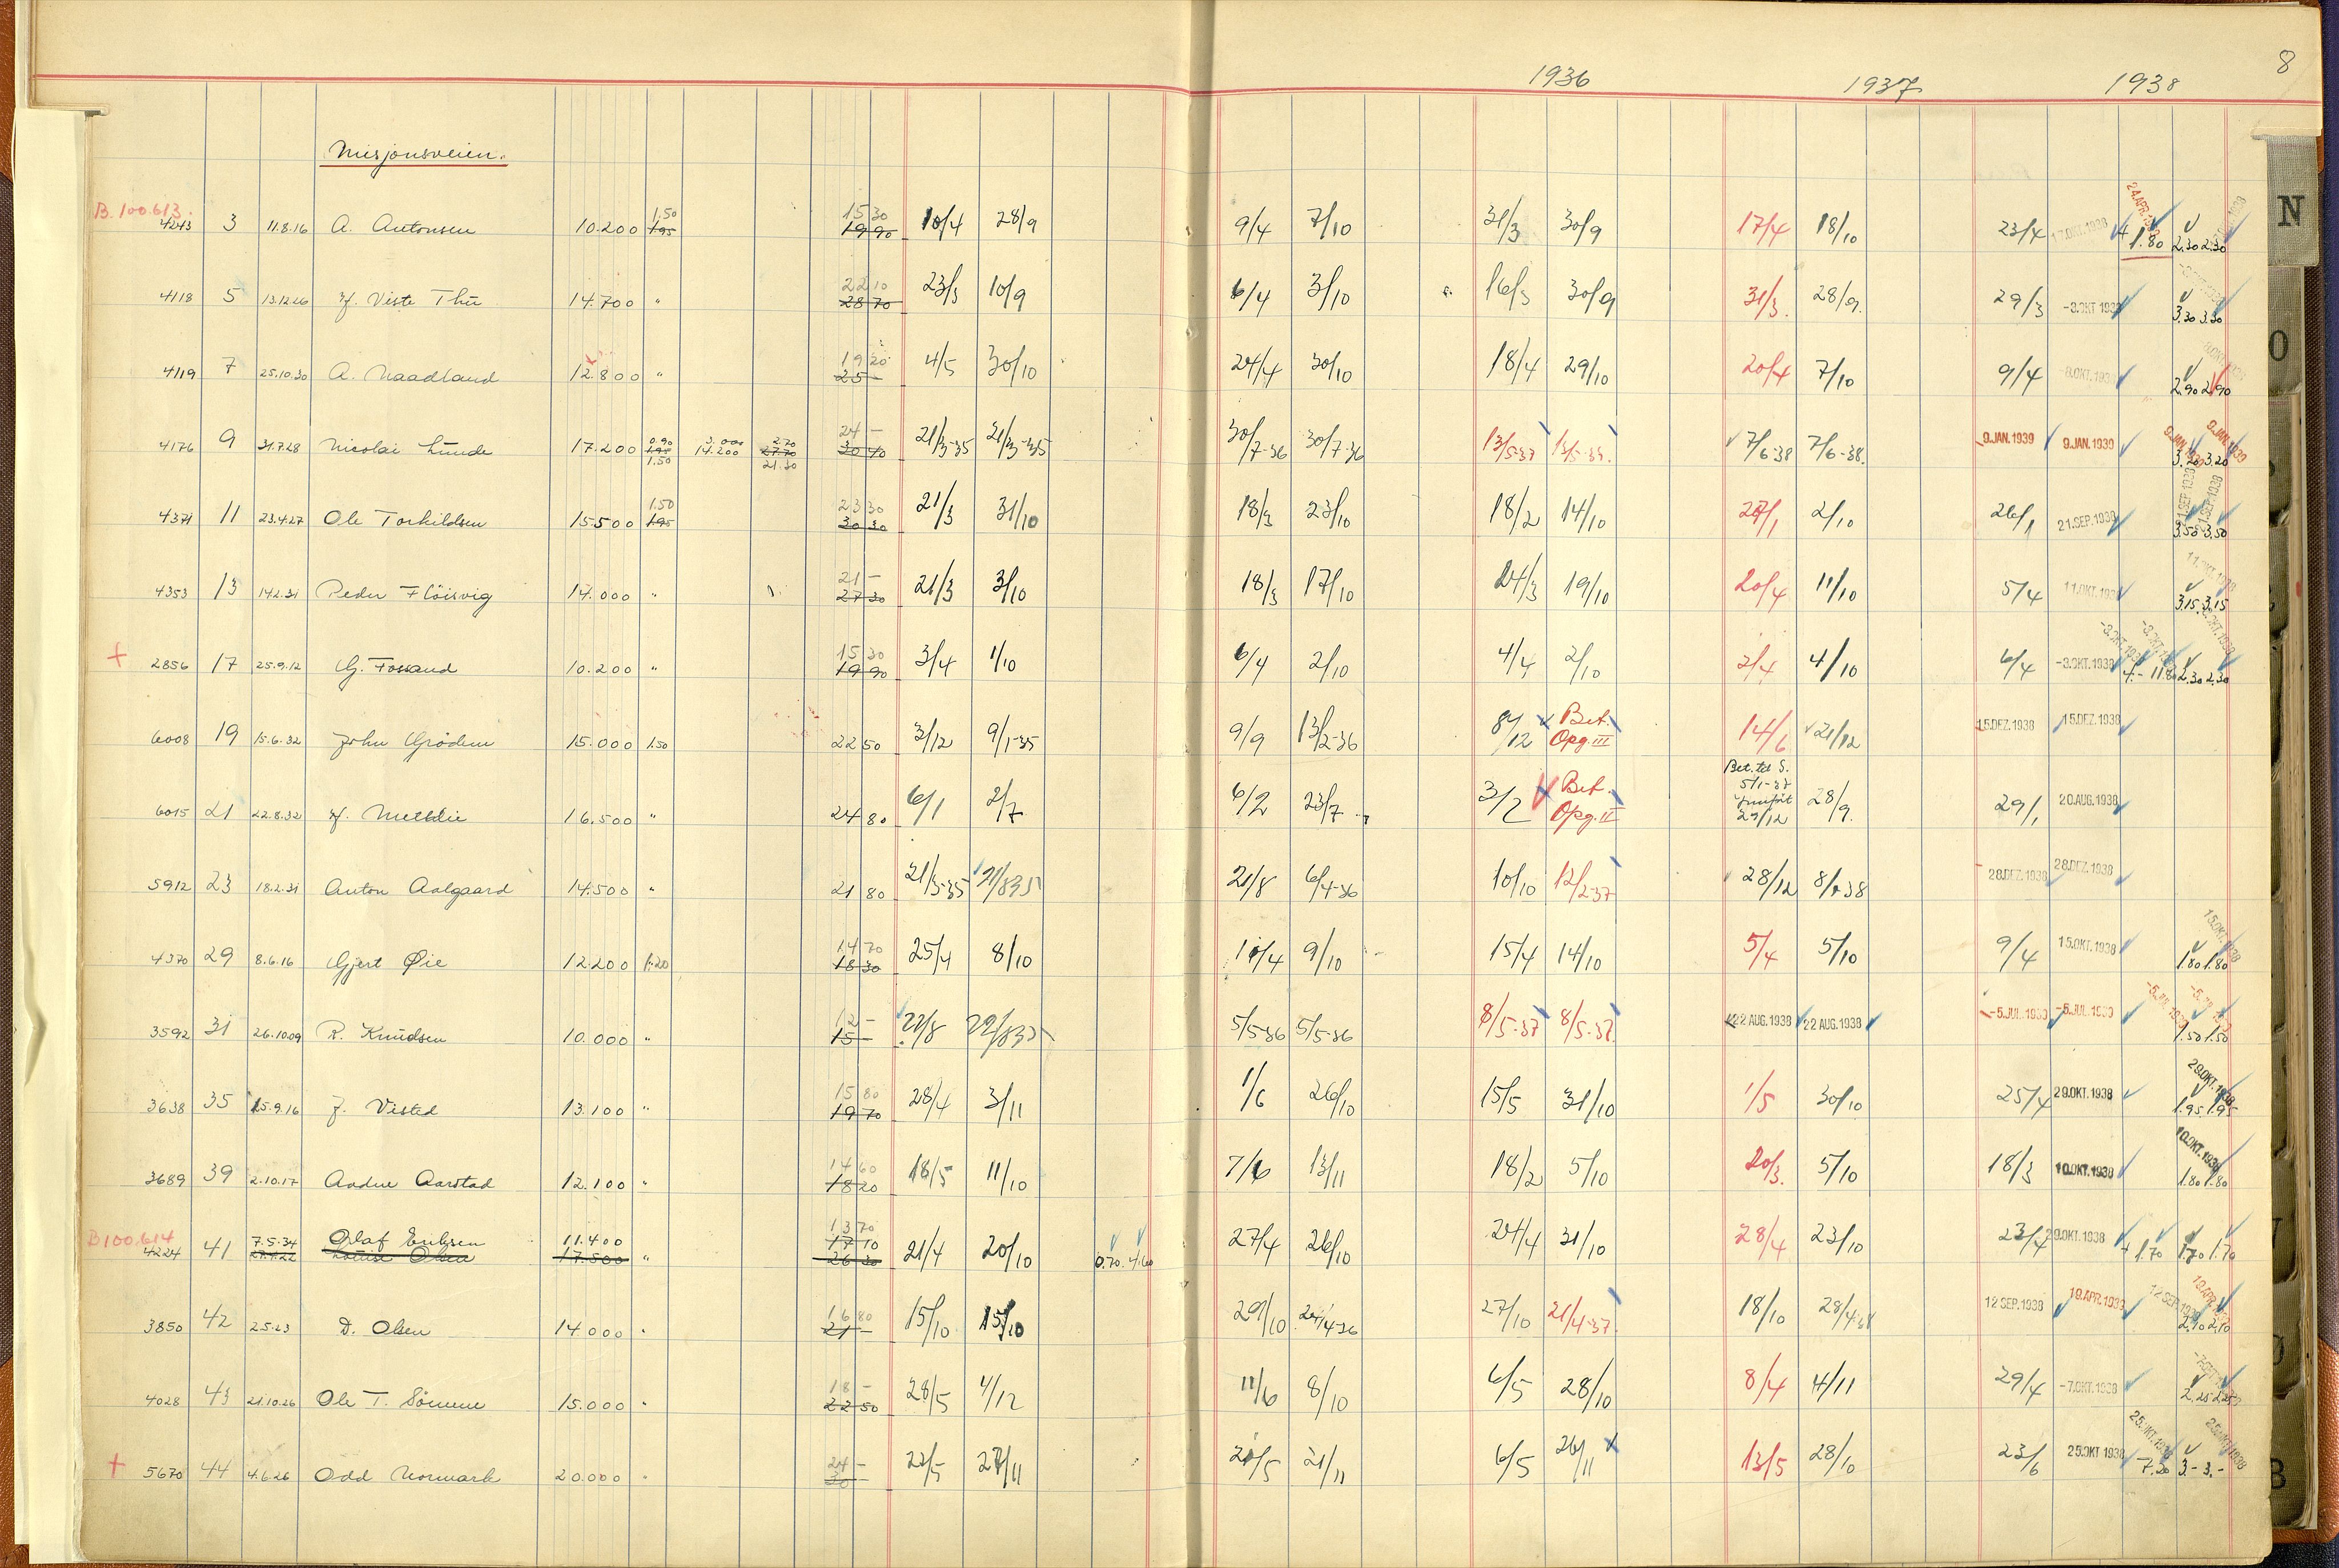 8
1936 1937 1938
Misjonsveien.
B.100.613.
4243 3 11.8.16 A. Antonsen 10.200 1.50 1.95 15 30 19 90 10/4 28/9 9/4 7/10 31/3 30/9 17/4 18/10 23/4 17.OKT.1938 24.APR.19 + 1.80 2.30 2.30
4118 5 13.12.26 Viste Thu 14.700 " 22 10 28 70 23/3 10/9 6/4 3/10 16/3 30/9 31/3. 28/9. 29/3 -3.OKT 1938 3.30 3.30
4119 7 25.10.30 A. Naadland 12.800 " 19 20 25 - 4/5 30/10 24/4 30/10 18/4 29/10 20/4 7/10 9/4 -8.OKT.1938 2.90 2.90
4176 9 31.7.28 Nicolai Lunde 17.200 0.90 1.95 1.50 3.000 14.200 2.70 27.70 21.30 24 - 30 40 21/3-35 21/3-35 30/7-36 30/7-36 13/5-37 13/5-37. 7/6-38 7/6-38. 9.JAN.1939 9.JAN.1939 9.JAN.1939 9.JAN.1939 3.20 3.20
4371 11 23.4.27 Ole Torkildsen 15.500 1.50 1.95 23 30 30 30 21/3 31/10 18/3 23/10 18/2 14/10 27/1 2/10 26/1 21.SEP.1938 21.SEP.1938 21.SEP.1938 3.50 3.50
4353 13 14.2.31 Peder Flöisvig 14.000 " 21 - 27 30 21/3 3/10 18/3 17/10 24/3 19/10 20/4 11/10 5/4 11.OKT.193 11.OKT.1938 3.15 3.15
+ 2856 17 25.9.12 G. Fossand 10.200 " 15 30 19 90 3/4 1/10 6/4 2/10 4/4 2/10 2/4 4/10 6/4 -3.OKT.1938 4.- 11.80 2.30 2.30
6008 19 15.6.32 John Grödem 15.000 1.50 22 50 3/12 9/1-35 9/9 13/2-36 8/12 Bet. Opg. III 14/6 21/12 15.DEZ.1938 15.DEZ.1938
6015 21 22.8.32 16.500 " 24 80 6/1 2/7 6/2 23/7 3/2 Bet. Opg. II Bet. til S. 5/1-37 29/12 28/9. 29/1 20.AUG.1938
5912 23 18.2.31 Anton Aalgaard 14.500 " 21 80 21/3-35 21/8 35 21/8 6/4-36 10/10 12/2-37 28/12 8/ 38 28.DEZ.1938 28.DEZ.1938
4370 29 8.6.16 Gjert Øie 12.200 1.20 14 70 18 30 25/4 8/10 9/10 15/4 14/10 5/4 5/10 9/4 15.OKT.1938 15.OKT.1938 1.80 1.80
3592 31 26.10.09 R. Knudsen 10.000 " 12 - 15 - 22/8 22/8 35 5/5-36 5/5-36 8/5-37 8/5-37. 22 AUG.1938 22 AUG.1938 -5.JUL.1939 -5.JUL.1939 1.50 1.50
3638 35 15.9.16 J. Visted 13.100 " 15 80 19 70 28/4 3/11 1/6 26/10 15/5 31/10 1/5 30/10 25/4 29.OKT.1938 29.OKT.1938 1.95 1.95
3689 39 2.10.17 Andrue Aarstad 12.100 " 14 60 18 20 18/5 11/10 7/6 13/11 18/2 5/10 20/3. 5/10 18/3 10.OKT.1938 10.OKT.1938 1.80 1.80
B100.614
4224 41 7.5.34 Olaf Eriksen 11.400 13 70 17 10 21/4 20/10 0.70. 4.60 27/4 26/10 24/4 31/10 28/4 23/10 23/4 29.OKT.1938 + 1.70 1.70 1.70
Louise Olsen 17.500 "
3850 42 2.5.23 D. Olsen 14.000 " 16 80 21 - 15/10 15/10 29/10 24/4-36 27/10 21/4-37. 18/10 28/4-38 12 SEP.1938 19.APR.1939 12 SEP.1938 19.APR.1939 2.10 2.10
4028 43 21.10.26 Ole T. Sömme 15.000 " 18 - 22 50 28/5 4/12 11/6 8/10 6/5 28/10 8/4 4/11 29/4 -7.OKT.1938 2.25 2.25
+ 5670 44 4.6.26 Odd Normark 20.000 " 24 - 30 - 22/5 27/11 20/5 21/11 6/5 26/11 13/5 28/10 23/6 25.OKT 1938 25.OKT.1938 25.OKT.1938 7.30 3.- 3.-
N
O